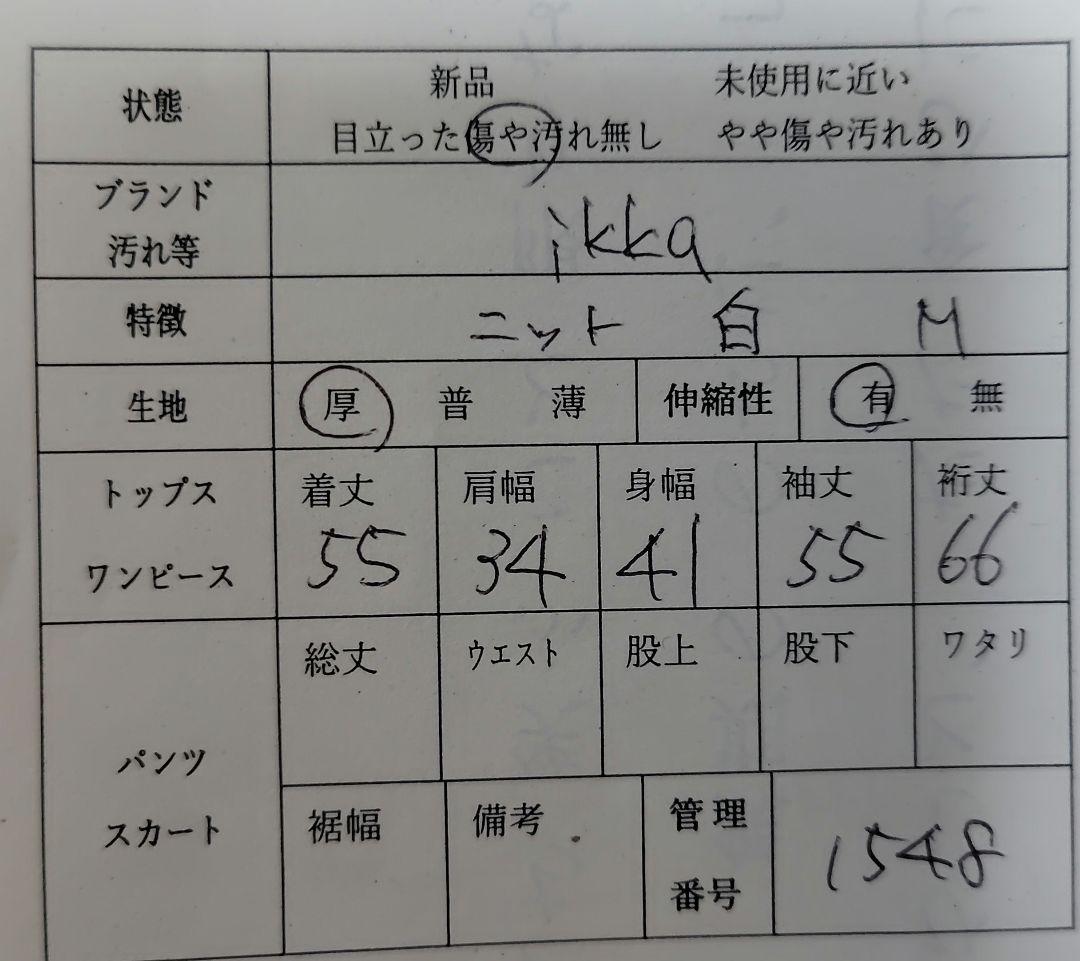 状態
新品 未使用に近い
目立った傷や汚れ無し やや傷や汚れあり
ブランド
汚れ等
ikka
特徴
ニット 白 M
生地
厚 普 薄
伸縮性
有 無
トップス
ワンピース
着丈 肩幅 身幅 袖丈 裄丈
55 34 41 55 66
パンツ
スカート
総丈 ウエスト 股上 股下 ワタリ
裾幅 備考
管理
番号
1548